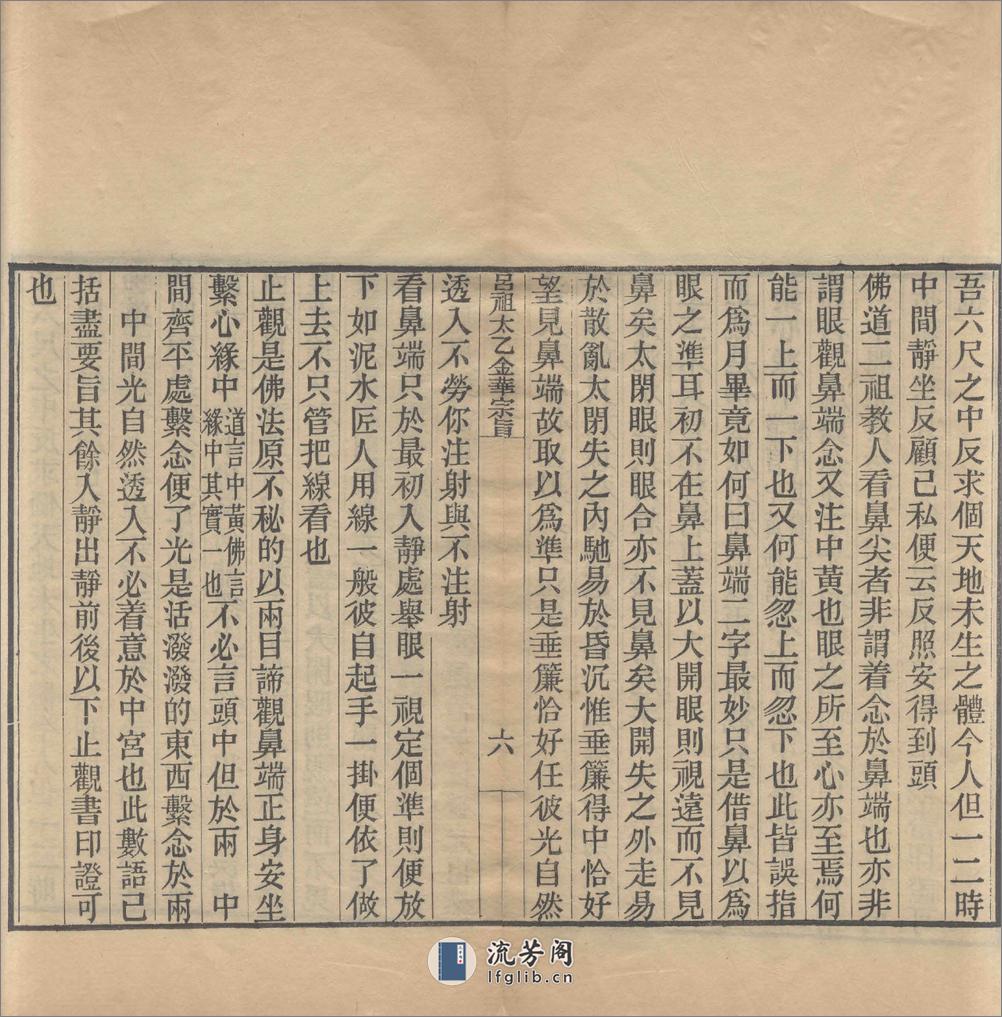 吾六尺之中反求個天地未生之體今人但一二時
中間靜坐反顧己私便云反照安得到頭
佛道二祖教人看鼻尖者非謂着念於鼻端也亦非
謂眼觀鼻端念又注中黃也眼之所至心亦至焉何
能一上而一下也又何能忽上而忽下也此皆誤指
而爲月畢竟如何曰鼻端二字最妙只是借鼻以爲
眼之準耳初不在鼻上蓋以大開眼則視遠而不見
鼻矣太閉眼則眼合亦不見鼻矣大開失之外走易
於散亂太閉失之內馳易於昏沉惟垂簾得中恰好
望見鼻端故取以爲準只是垂簾恰好任彼光自然
呂祖太乙金華宗旨 六
透入不勞你注射與不注射
看鼻端只於最初入靜處舉眼一視定個準則便放
下如泥水匠人用線一般彼自起手一掛便依了做
上去不只管把線看也
止觀是佛法原不秘的以兩目諦觀鼻端正身安坐
繫心緣中道言中黃佛言緣中其實一也不必言頭中但於兩 中
間齊平處繫念便了光是活潑潑的東西繫念於兩
中間光自然透入不必着意於中宮也此數語已
括盡要旨其餘入靜出靜前後以下止觀書印證可
也
流芳阁
lfglib.cn